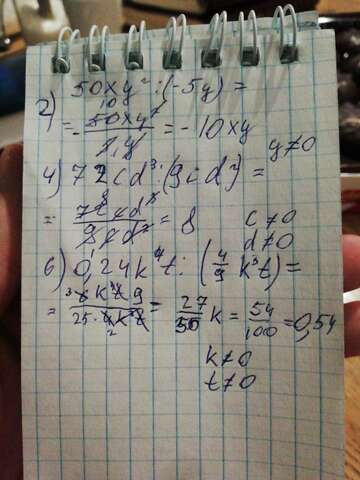 2) 50xy² : (-5y) =
= - 50xy² / 5y = -10xy
y≠0
4) 72cd³ : (9cd³) =
= 72cd³ / 9cd³ = 8
c≠0
d≠0
6) 0,24k⁴t : (4/9 k³t) =
= 6k⁴t 9 / 25·4k³t = 27/50 k = 54/100 = 0,54
k≠0
t≠0